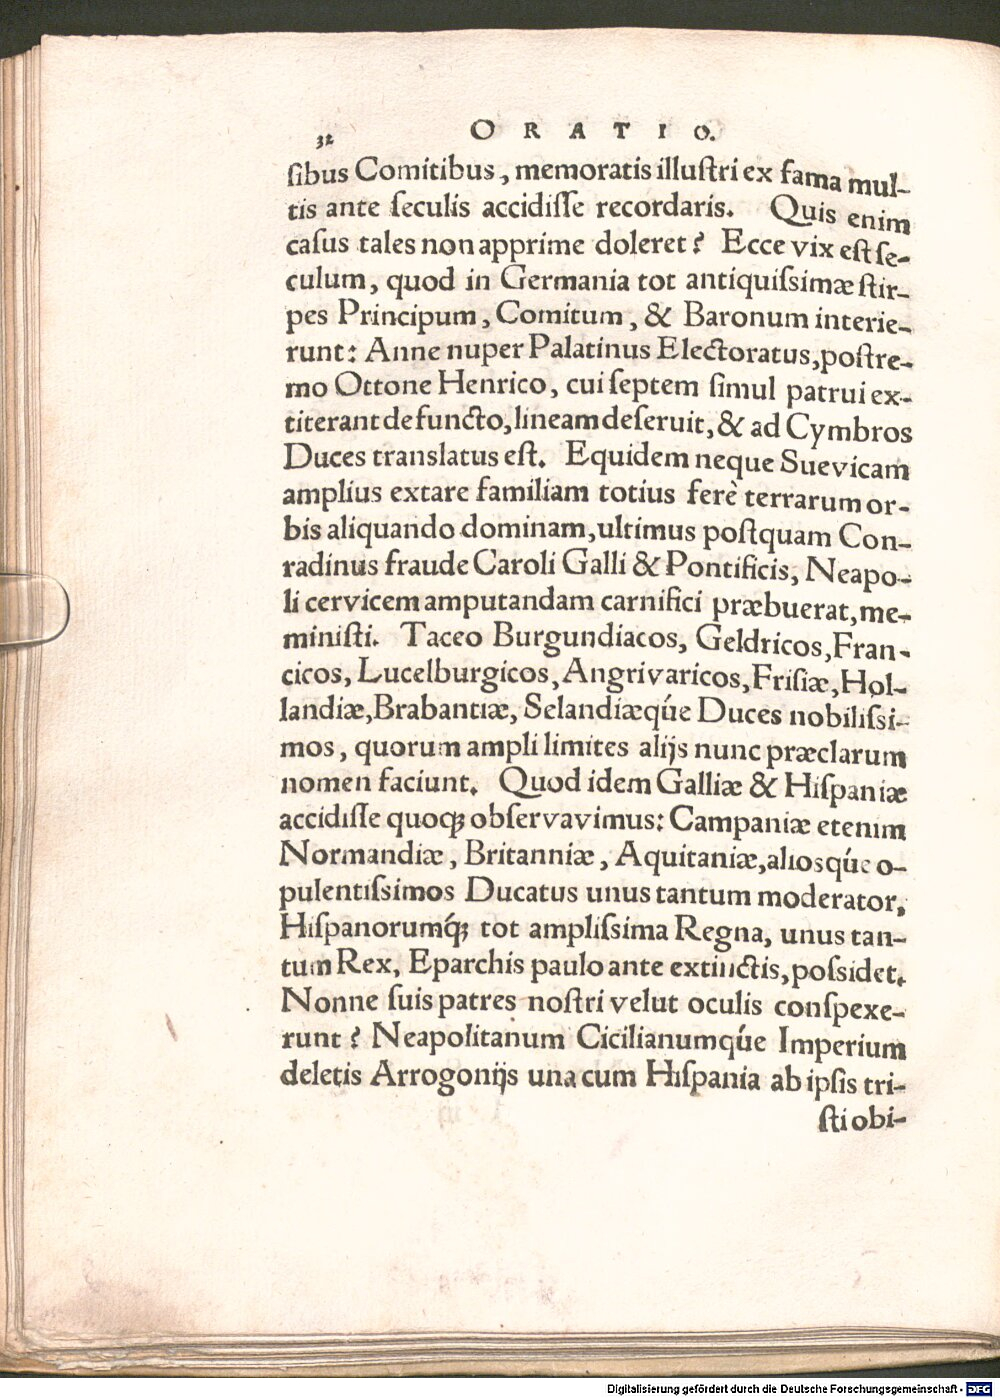 32 ORATIO.
ſibus Comitibus, memoratis illuſtri ex fama mul-
tis ante ſeculis accidiſſe recordaris. Quis enim
caſus tales non apprime doleret? Ecce vix eſt ſe-
culum, quod in Germania tot antiquiſsimæ ſtir-
pes Principum, Comitum, & Baronum interie-
runt: Anne nuper Palatinus Electoratus, poſtre-
mo Ottone Henrico, cui ſeptem ſimul patrui ex-
titerant defuncto, lineam deſeruit, & ad Cymbros
Duces translatus eſt. Equidem neque Suevicam
amplius extare familiam totius ferè terrarum or-
bis aliquando dominam, ultimus poſtquam Con-
radinus fraude Caroli Galli & Pontificis, Neapo-
li cervicem amputandam carnifici præbuerat, me-
miniſti. Taceo Burgundiacos, Geldricos, Fran-
cicos, Lucelburgicos, Angrivaricos, Friſiæ, Hol-
landiæ, Brabantiæ, Selandiæq́ue Duces nobiliſsi-
mos, quorum ampli limites alijs nunc præclarum
nomen faciunt. Quod idem Galliæ & Hiſpaniæ
accidiſſe quoq; obſervavimus: Campaniæ etenim
Normandiæ, Britanniæ, Aquitaniæ, aliosq́ue o-
pulentiſsimos Ducatus unus tantum moderator,
Hiſpanorumq́; tot ampliſsima Regna, unus tan-
tum Rex, Eparchis paulo ante extinctis, poſsidet.
Nonne ſuis patres noſtri velut oculis conſpexe-
runt? Neapolitanum Cicilianumq́ue Imperium
deletis Arrogonijs una cum Hiſpania ab ipſis tri-
ſti obi-
Digitalisierung gefördert durch die Deutsche Forschungsgemeinschaft - DFG